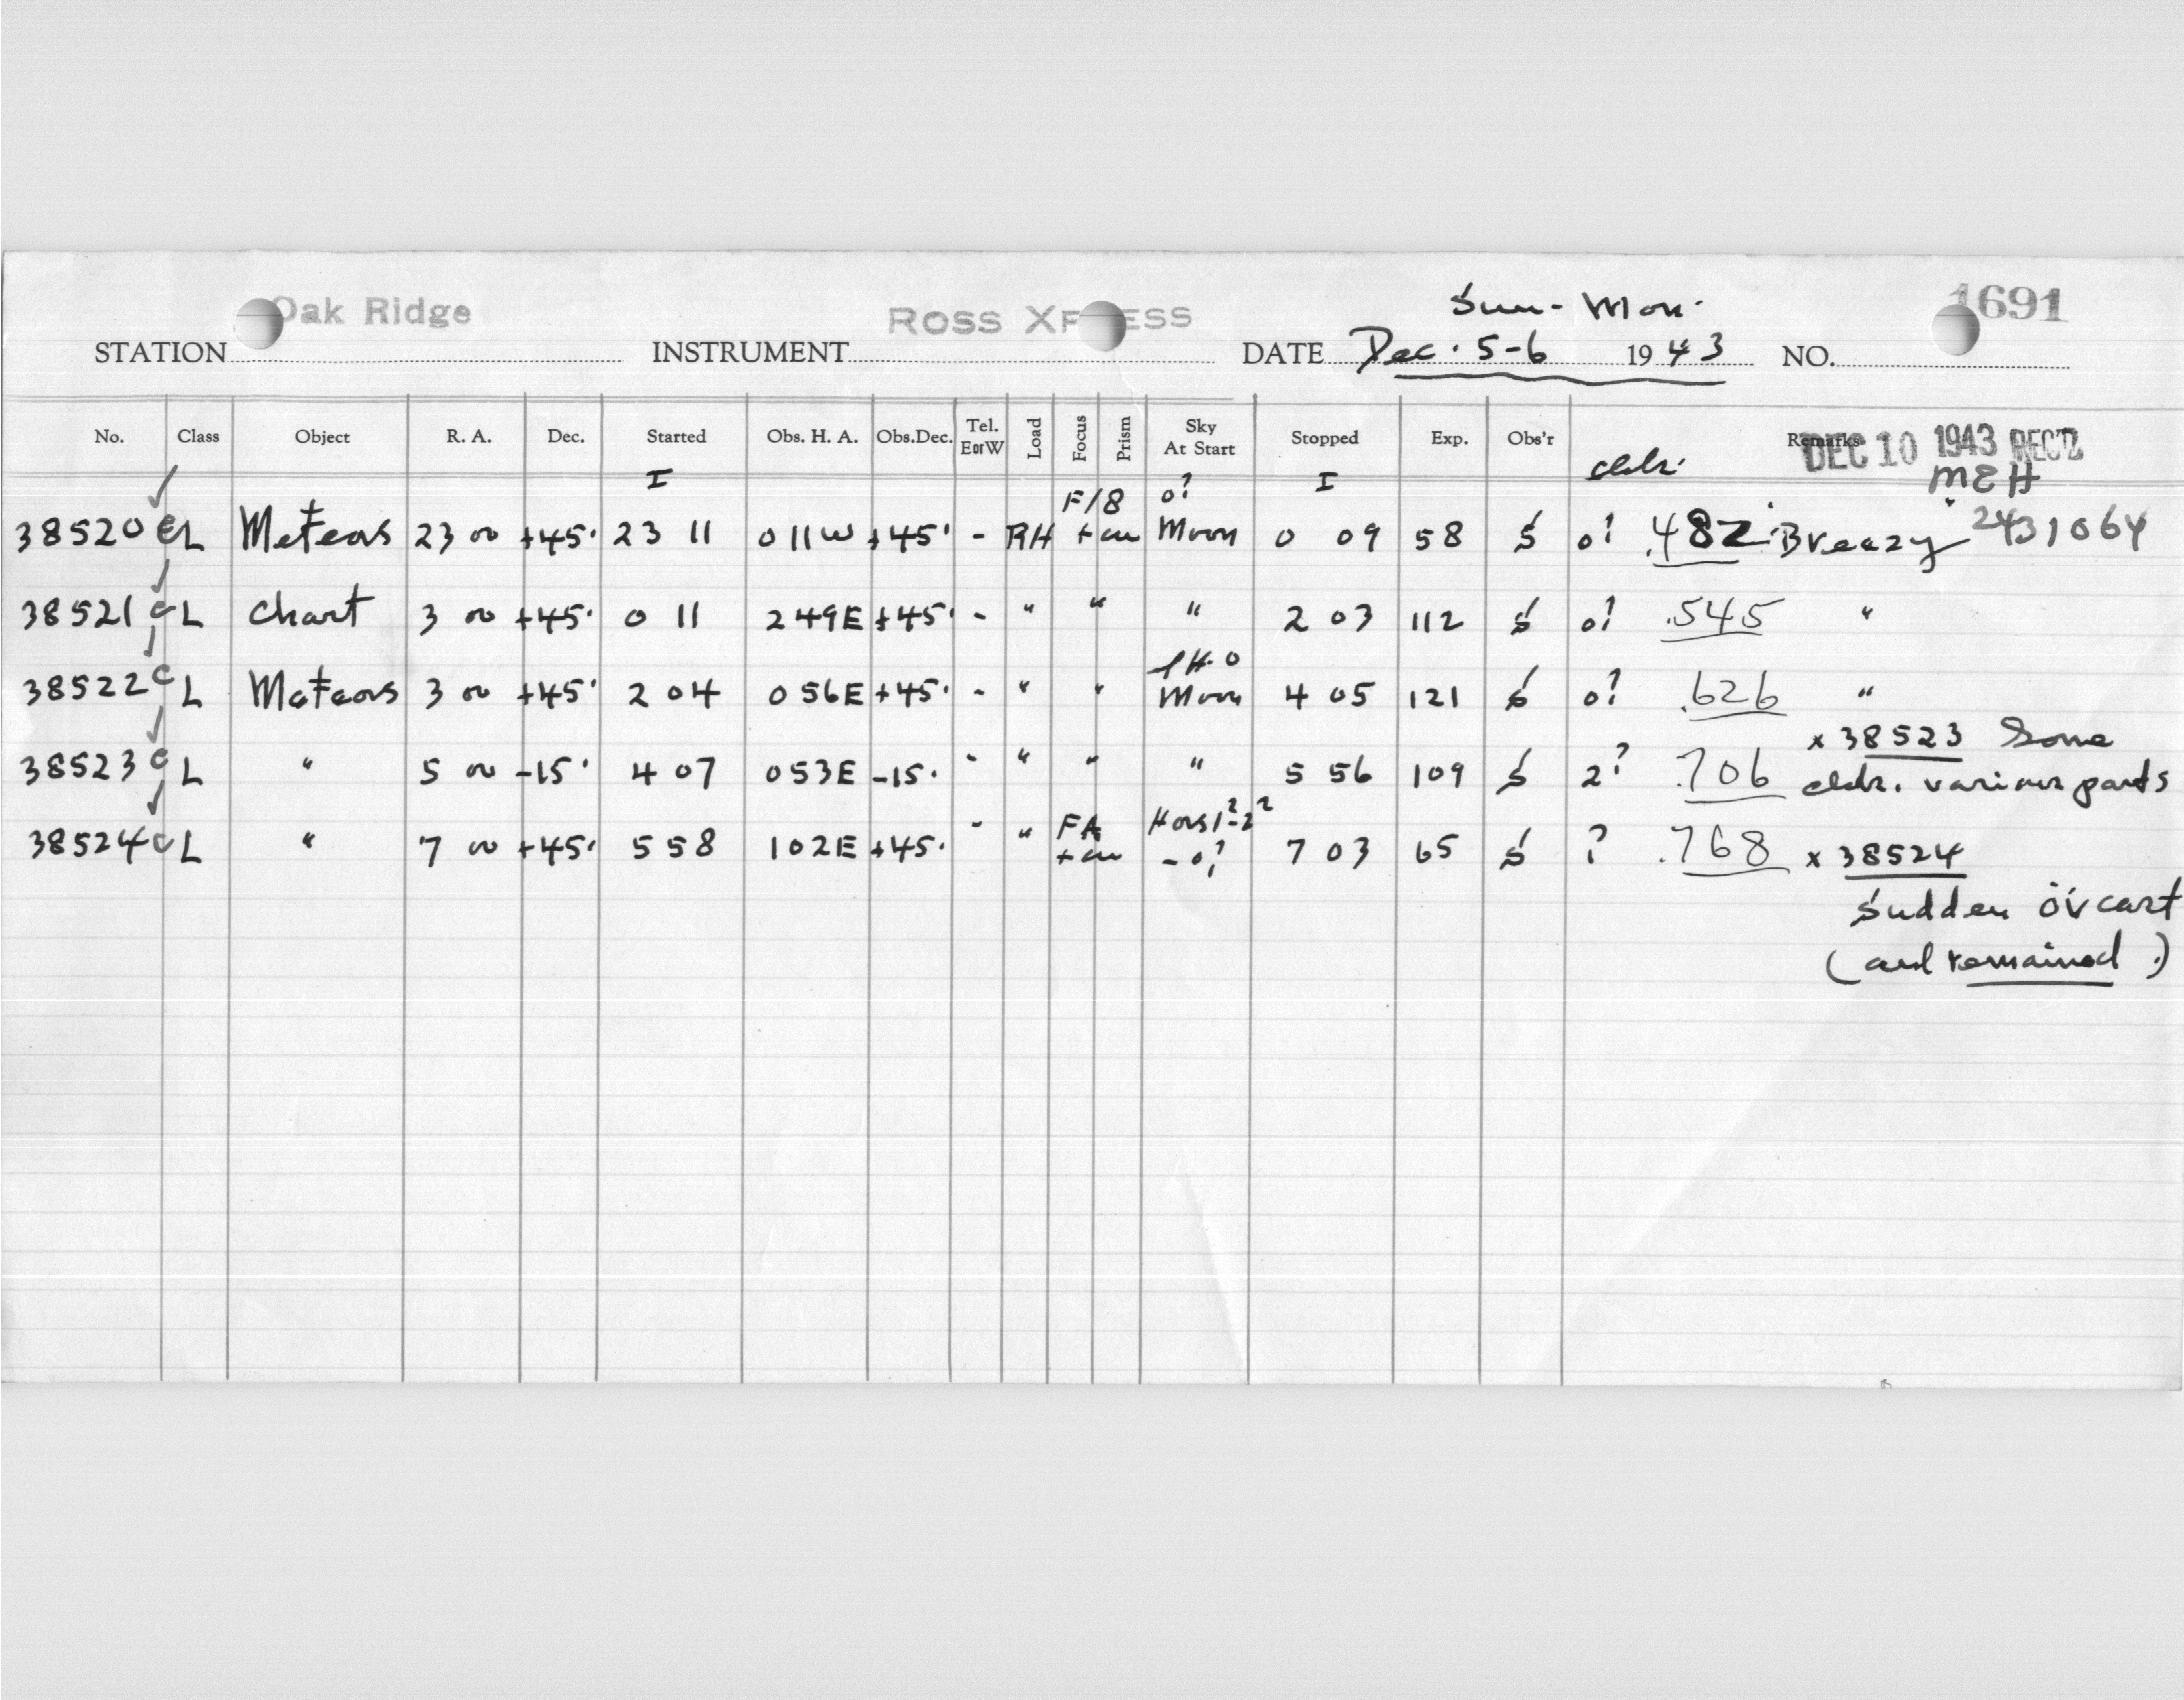 Oak Ridge ROSS XPRESS Sun - Mon. 1691
STATION INSTRUMENT DATE Dec. 5-6 1943 NO.
No. Class Object R. A. Dec. Started Obs. H. A. Obs.Dec. Tel. E or W Load Focus Prism Sky At Start Stopped Exp. Obs'r clds. Remarks DEC 10 1943 REC'D
I I MEH
F/8 0?
38520 c L Meteors 23 00 +45° 23 11 0 11W +45° - RH Moon 0 09 58 S 0? .482 Breezy 2431064
38521 c L Chart 3 00 +45° 0 11 2 49E +45° - " " " 2 03 112 S 0? .545 "
38522 c L Meteors 3 00 +45° 2 04 0 56E +45° - " " Moon 4 05 121 S 0? .626 "
x 38523 Some
38523 c L " 5 00 -15° 4 07 0 53E -15° - " " " 5 56 109 S 2? .706 clds. various parts
38524 c L " 7 00 +45° 5 58 1 02E +45° - " 7 03 65 S ? .768 x 38524
Sudden ovcast
(and remained.)